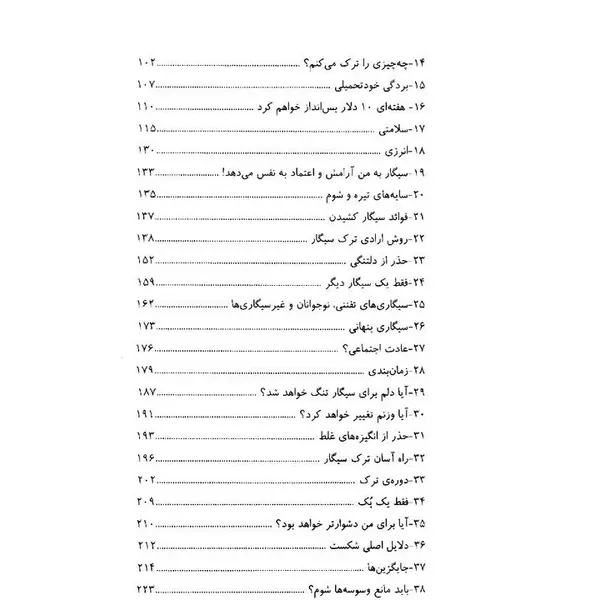 ۱۴-چه‌چیزی را ترک می‌کنم؟ ۱۰۲
۱۵-بردگی خودتحمیلی ۱۰۷
۱۶- هفته‌ای ۱۰ دلار پس‌انداز خواهم کرد ۱۱۰
۱۷-سلامتی ۱۱۵
۱۸-انرژی ۱۳۰
۱۹-سیگار به من آرامش و اعتماد به نفس می‌دهد! ۱۳۳
۲۰-سایه‌های تیره و شوم ۱۳۵
۲۱-فوائد سیگار کشیدن ۱۳۷
۲۲-روش ارادی ترک سیگار ۱۳۸
۲۳-حذر از دلتنگی ۱۵۲
۲۴-فقط یک سیگار دیگر ۱۵۹
۲۵-سیگاری‌های تفننی، نوجوانان و غیرسیگاری‌ها ۱۶۲
۲۶-سیگاری پنهانی ۱۷۳
۲۷-عادت اجتماعی؟ ۱۷۶
۲۸-زمان‌بندی ۱۷۹
۲۹-آیا دلم برای سیگار تنگ خواهد شد؟ ۱۸۷
۳۰-آیا وزنم تغییر خواهد کرد؟ ۱۹۱
۳۱-حذر از انگیزه‌های غلط ۱۹۳
۳۲-راه آسان ترک سیگار ۱۹۶
۳۳-دوره‌ی ترک ۲۰۲
۳۴-فقط یک پُک ۲۰۹
۳۵-آیا برای من دشوارتر خواهد بود؟ ۲۱۰
۳۶-دلایل اصلی شکست ۲۱۲
۳۷-جایگزین‌ها ۲۱۴
۳۸-باید مانع وسوسه‌ها شوم؟ ۲۲۳